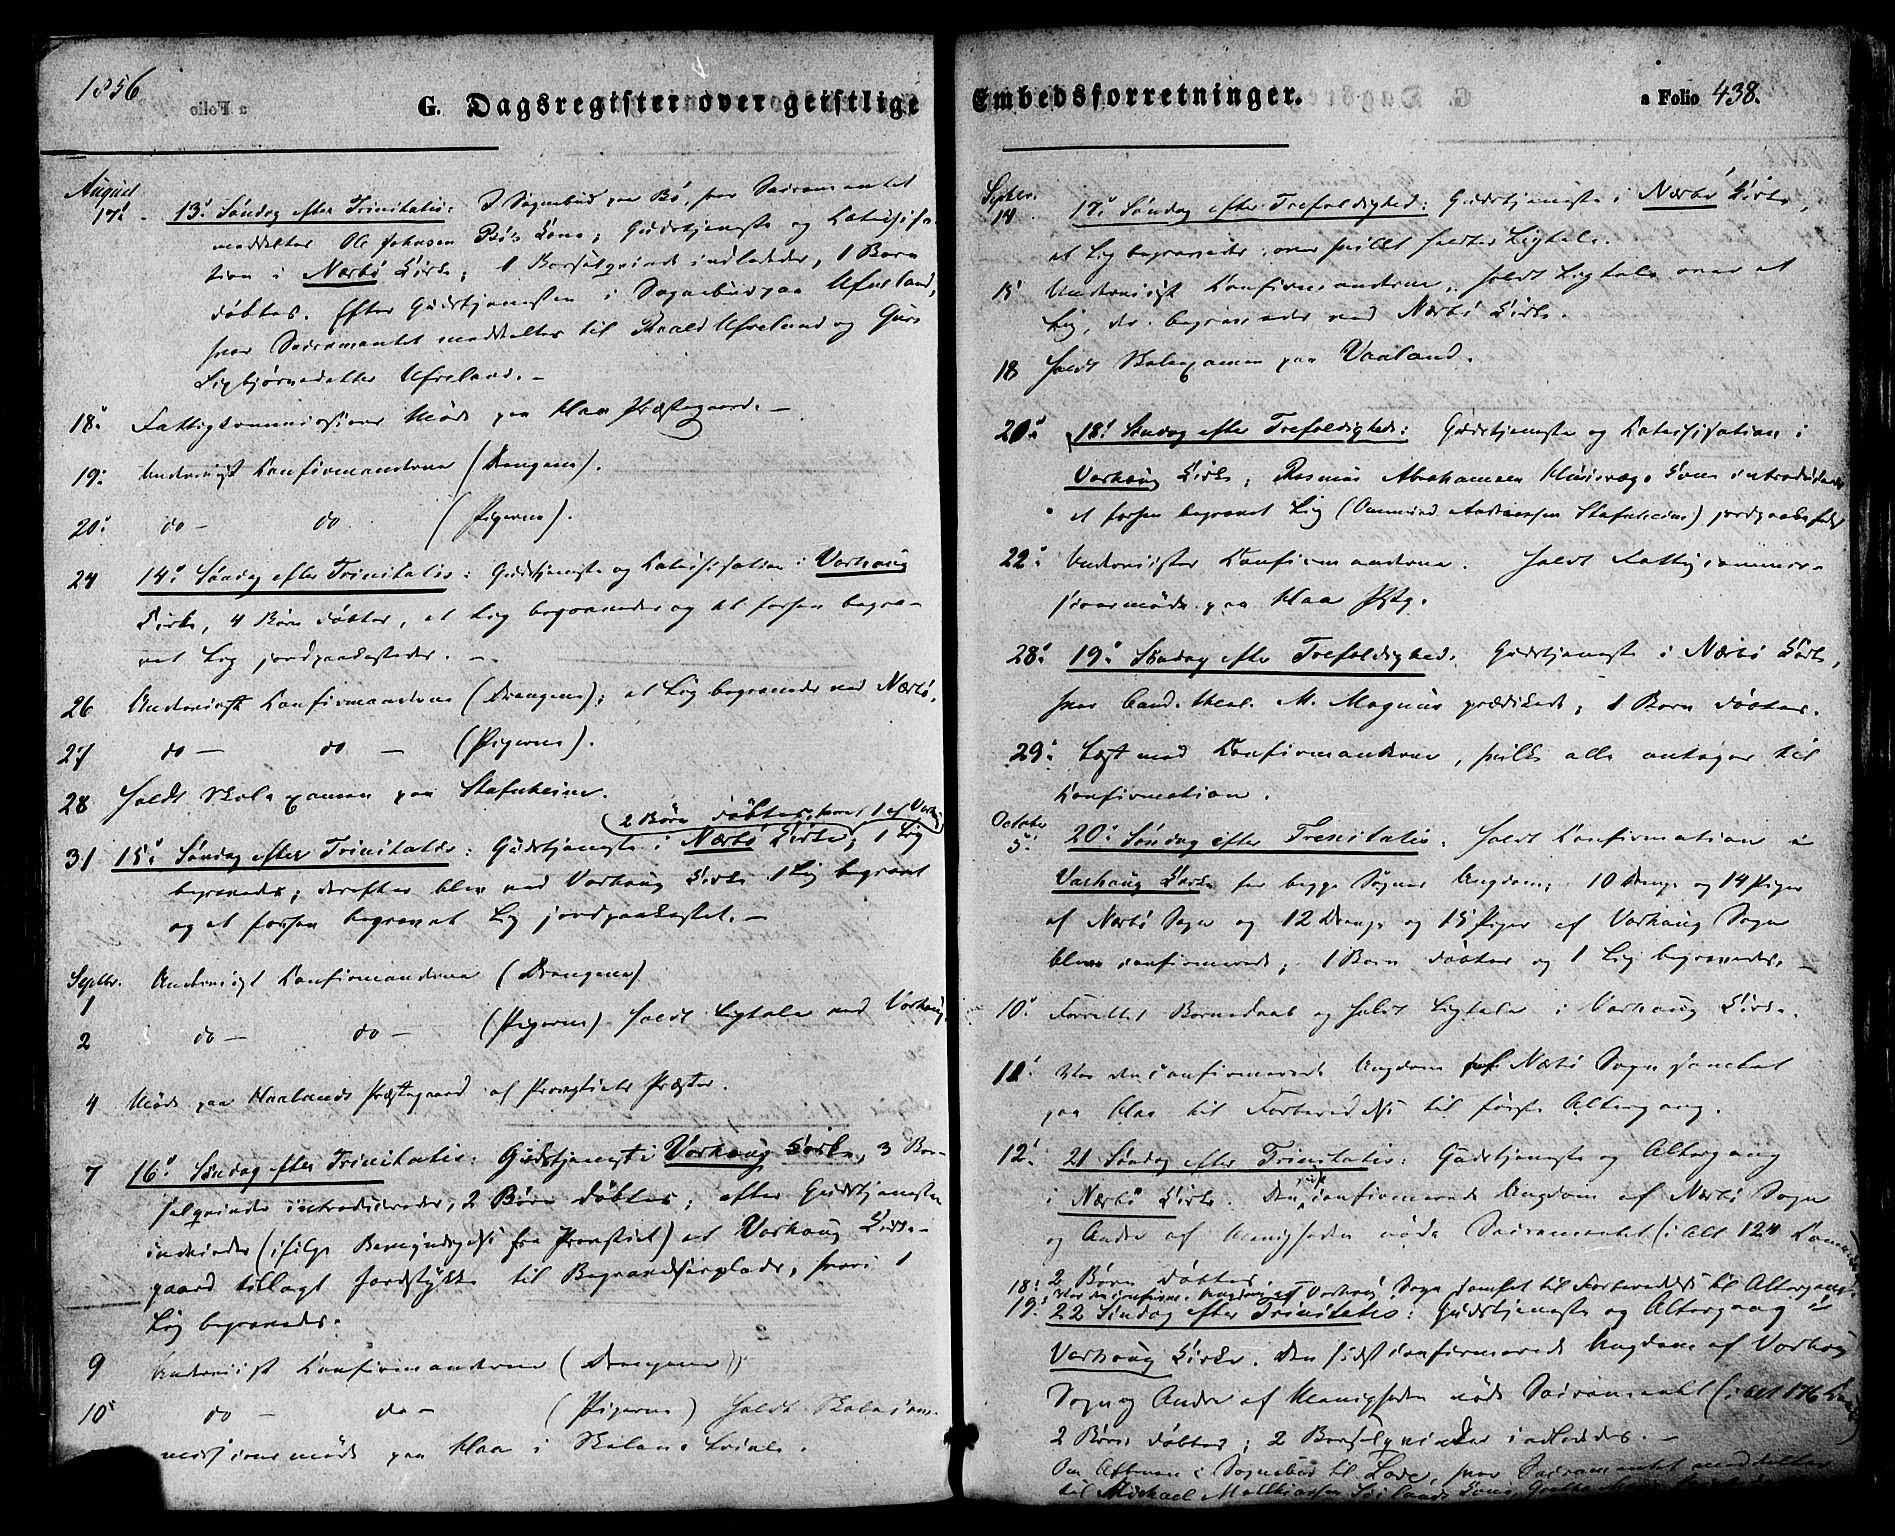 1856
G. Dagsregister over geistlige Embedsforretninger.
a Folio 438.
August
17. 13. Søndag efter Trinitatis: I Sognebud paa Bø, hvor Sacramentet
meddeltes Ole Johnsen Bø's Kone; Gudstjeneste og Catechisa-
tion i Nærbø Kirke; 1 Barselqvinde indlededes, 1 Barn
døbtes. Efter Gudstjenesten i Sognebud paa Ufseland,
hvor Sacramentet meddeltes til Ufseland og
Ufseland. –
18. Fattigcommissions Møde paa Haa Præstegaard. –
19. Underviist Confirmanderne (Drengene).
20. do – do (Pigerne).
24 14. Søndag efter Trinitatis: Gudstjeneste og Catechisation i Varhaug
Kirke, 4 Børn døbtes, et Lig begravedes og et forhen begra-
vet Lig jordpaakastedes. –
26 Underviist Confirmanderne (Drengene); et Lig begravedes ved Nærbø.
27 do – do – (Pigerne).
28 Holdt Skoleexamen paa Stafnheim.
2 Børn døbtes, hvoraf 1 af Varhaug
31 15. Søndag efter Trinitatis: Gudstjeneste i Nærbø Kirke, 1 Lig
begravedes; derefter blev ved Varhaug Kirke 1 Lig begravet
og et forhen begravet Lig jordpaakastet. –
Septbr.
1 Underviist Confirmanderne (Drengene)
2 do – do – (Pigerne) Holdt Ligtale ved Varhaug.
4 Møde paa Haalands Præstegaard af Provstiets Præster.
7 16. Søndag efter Trinitatis: Gudstjeneste i Varhaug Kirke, 3 Bar-
selqvinder introduceredes, 2 Børn døbtes; efter Gudstjenesten
indviedes (ifølge Bemyndigelse fra Provstiet) et Varhaug Kirke-
gaard tillagt Jordstykke til Begravelsesplads, hvori 1
Lig begravedes.
9 Underviist Confirmanderne (Drengene)
10 do – do – (Pigerne) Holdt Skolecom-
missionsmøde paa Haa i Skolens Locale.
Septbr.
14 17. Søndag efter Trefoldighed: Gudstjeneste i Nærbø Kirke,
et Lig begravedes, over hvilket holdtes Ligtale.
15 Underviist Confirmanderne, holdt Ligtale over et
Lig, der begravedes ved Nærbø Kirke.
18 Holdt Skoleexamen paa Vaaland.
20. 18. Søndag efter Trefoldighed: Gudstjeneste og Catechisation i
Varhaug Kirke; Rasmus Abrahamsen Kone introduceredes
et forhen begravet Lig (Ommund Andreassen Stafnheim) jordpaakastedes
22. Underviistes Confirmanderne. Holdt Fattigcommis-
sionsmøde paa Haa Pstg.
28. 19. Søndag efter Trefoldighed. Gudstjeneste i Nærbø Kirke,
hvor Cand. theol. M. Magnus prædikede; 1 Barn døbtes.
29. Læst med Confirmanderne, hvilke alle antages til
Confirmation.
October
5. 20. Søndag efter Trinitatis. Holdt Confirmation i
Varhaug Kirke for begge Sognes Ungdom; 10 Drenge og 14 Piger
af Nærbø Sogn og 12 Drenge og 15 Piger af Varhaug Sogn
bleve confirmerede; 1 Barn døbtes og 1 Lig begravedes. –
10. Forrettet Barnedaab og holdt Ligtale i Varhaug Kirke.
11. Var den confirmerede Ungdom af Nærbø Sogn samlet
paa Haa til Forberedelse til første Altergang.
12. 21 Søndag efter Trinitatis: Gudstjeneste og Altergang
i Nærbø Kirke. Den sidst confirmerede Ungdom af Nærbø Sogn
og Andre af Menigheden nøde Sacramentet (i Alt 124
2 Børn døbtes.
18. Var den confirm. Ungdom af Varhaug Sogn samlet til Forberedelse til Altergang.
19. 22 Søndag efter Trinitatis: Gudstjeneste og Altergang i
Varhaug Kirke. Den sidst confirmerede Ungdom af Varhaug
Sogn og Andre af Menigheden nøde Sacramentet (i Alt 176
2 Børn døbtes; 2 Barselqvinder indlededes. –
Om Aftenen i Sognebud til hvor Sacramentet meddeltes
til Michael Matthiassen Kone,